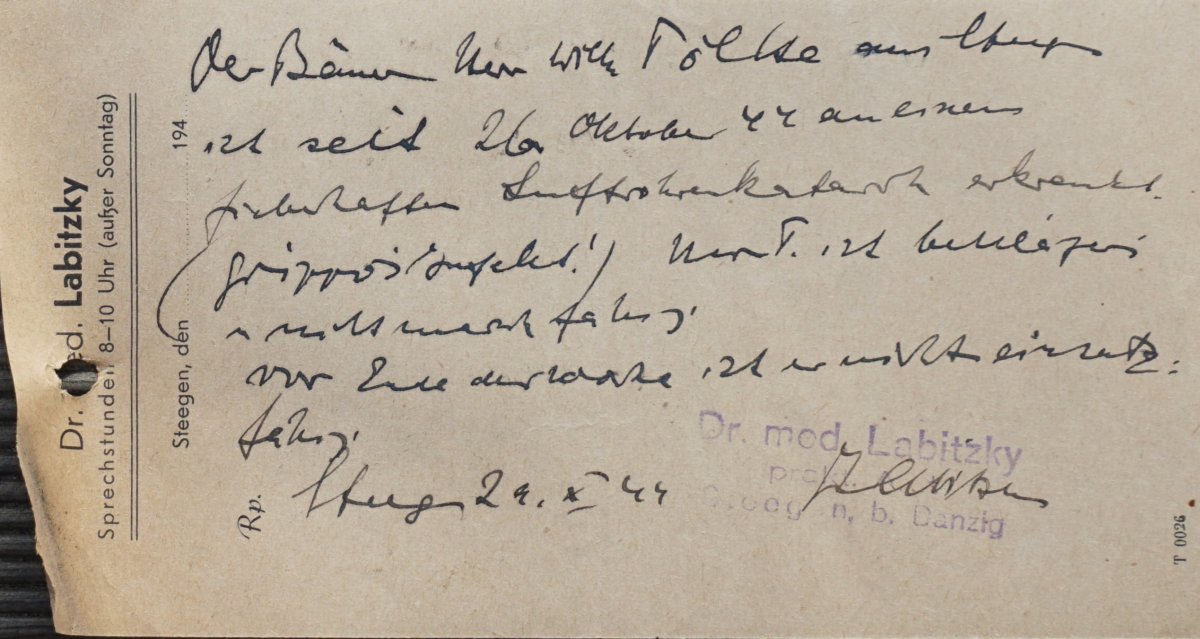 Dr. med. Labitzky
Sprechstunden 8–10 Uhr (außer Sonntag)
Steegen, den 194
Rp.
Der Herr Willi aus
ist seit 26. Oktober 44 an einem
fieberhaften Luftröhrenkatarrh erkrankt.
Herr T. ist bettlägerig
u. nicht marschfähig.
vor Ende der Woche ist er nicht einsatz-
fähig.
44
Dr. med. Labitzky
prakt.
Steegen, b. Danzig
T 0026